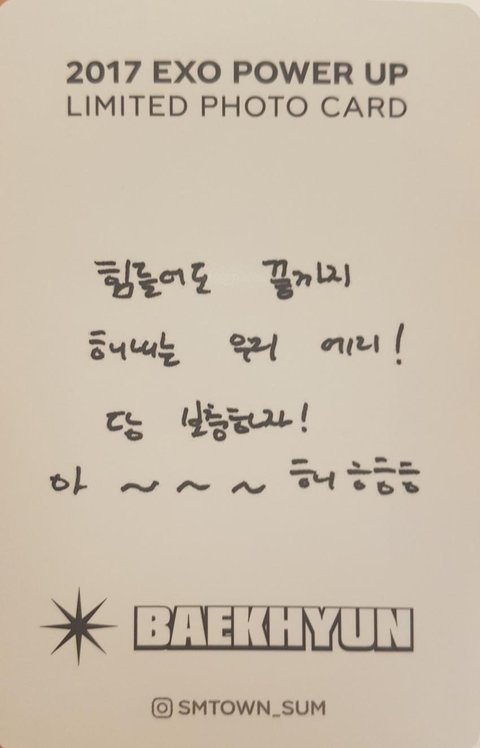 2017 EXO POWER UP
LIMITED PHOTO CARD
힘들어도 끝까지
해내는 우리 에리!
당 보충하자!
아 ~ ~ ~ 해 ㅎㅎㅎ
BAEKHYUN
SMTOWN_SUM